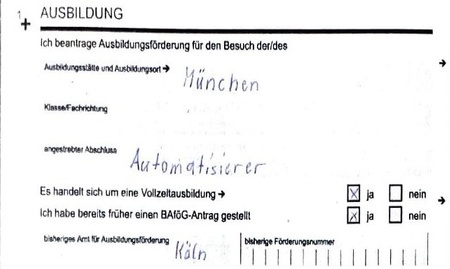 1 AUSBILDUNG
Ich beantrage Ausbildungsförderung für den Besuch der/des
Ausbildungsstätte und Ausbildungsort → München
Klasse/Fachrichtung
angestrebter Abschluss Automatisierer
Es handelt sich um eine Vollzeitausbildung → ja nein
Ich habe bereits früher einen BAföG-Antrag gestellt ja nein
bisheriges Amt für Ausbildungsförderung Käln bisherige Förderungsnummer